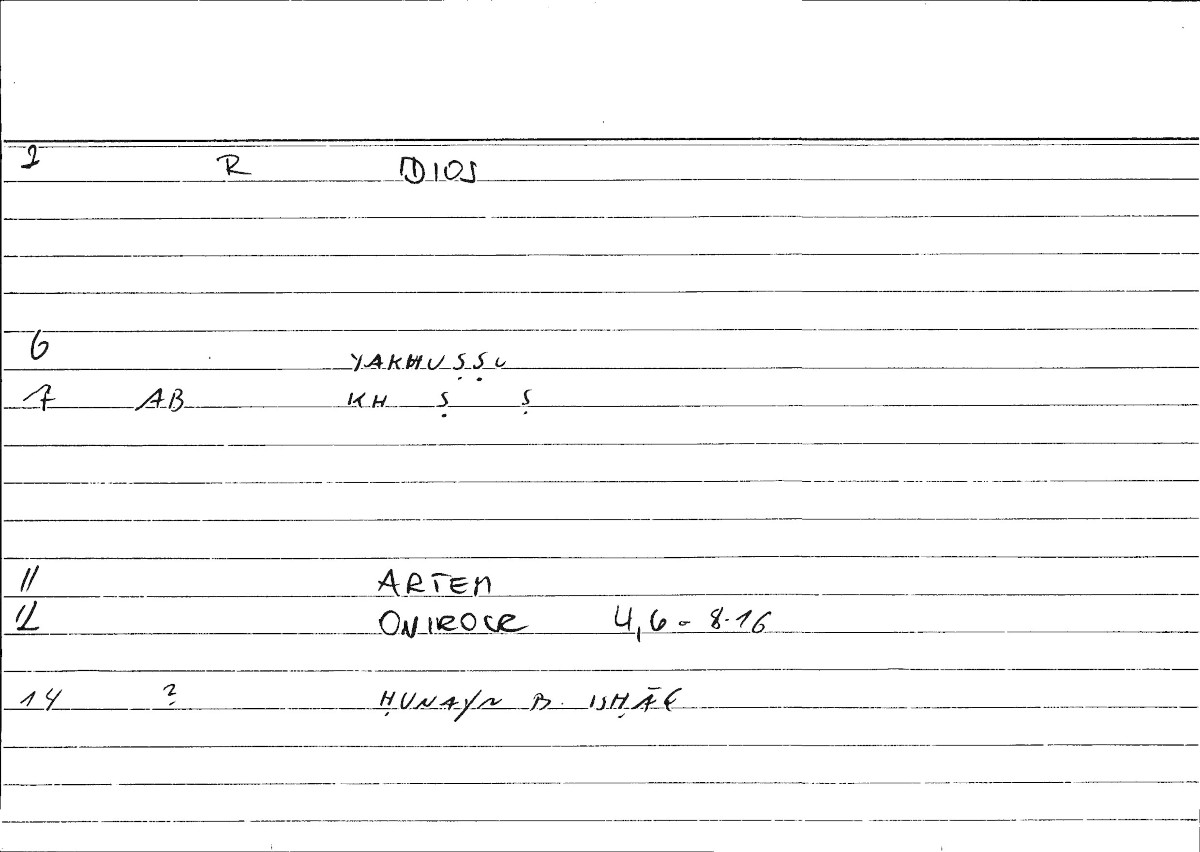 2 R DIOS
6 YAKHUṢṢU
7 AB KH Ṣ Ṣ
11 ARTEM
12 ONIROCR 4,6 - 8-16
14 ? ḤUNAYN B. ISḤĀḲ